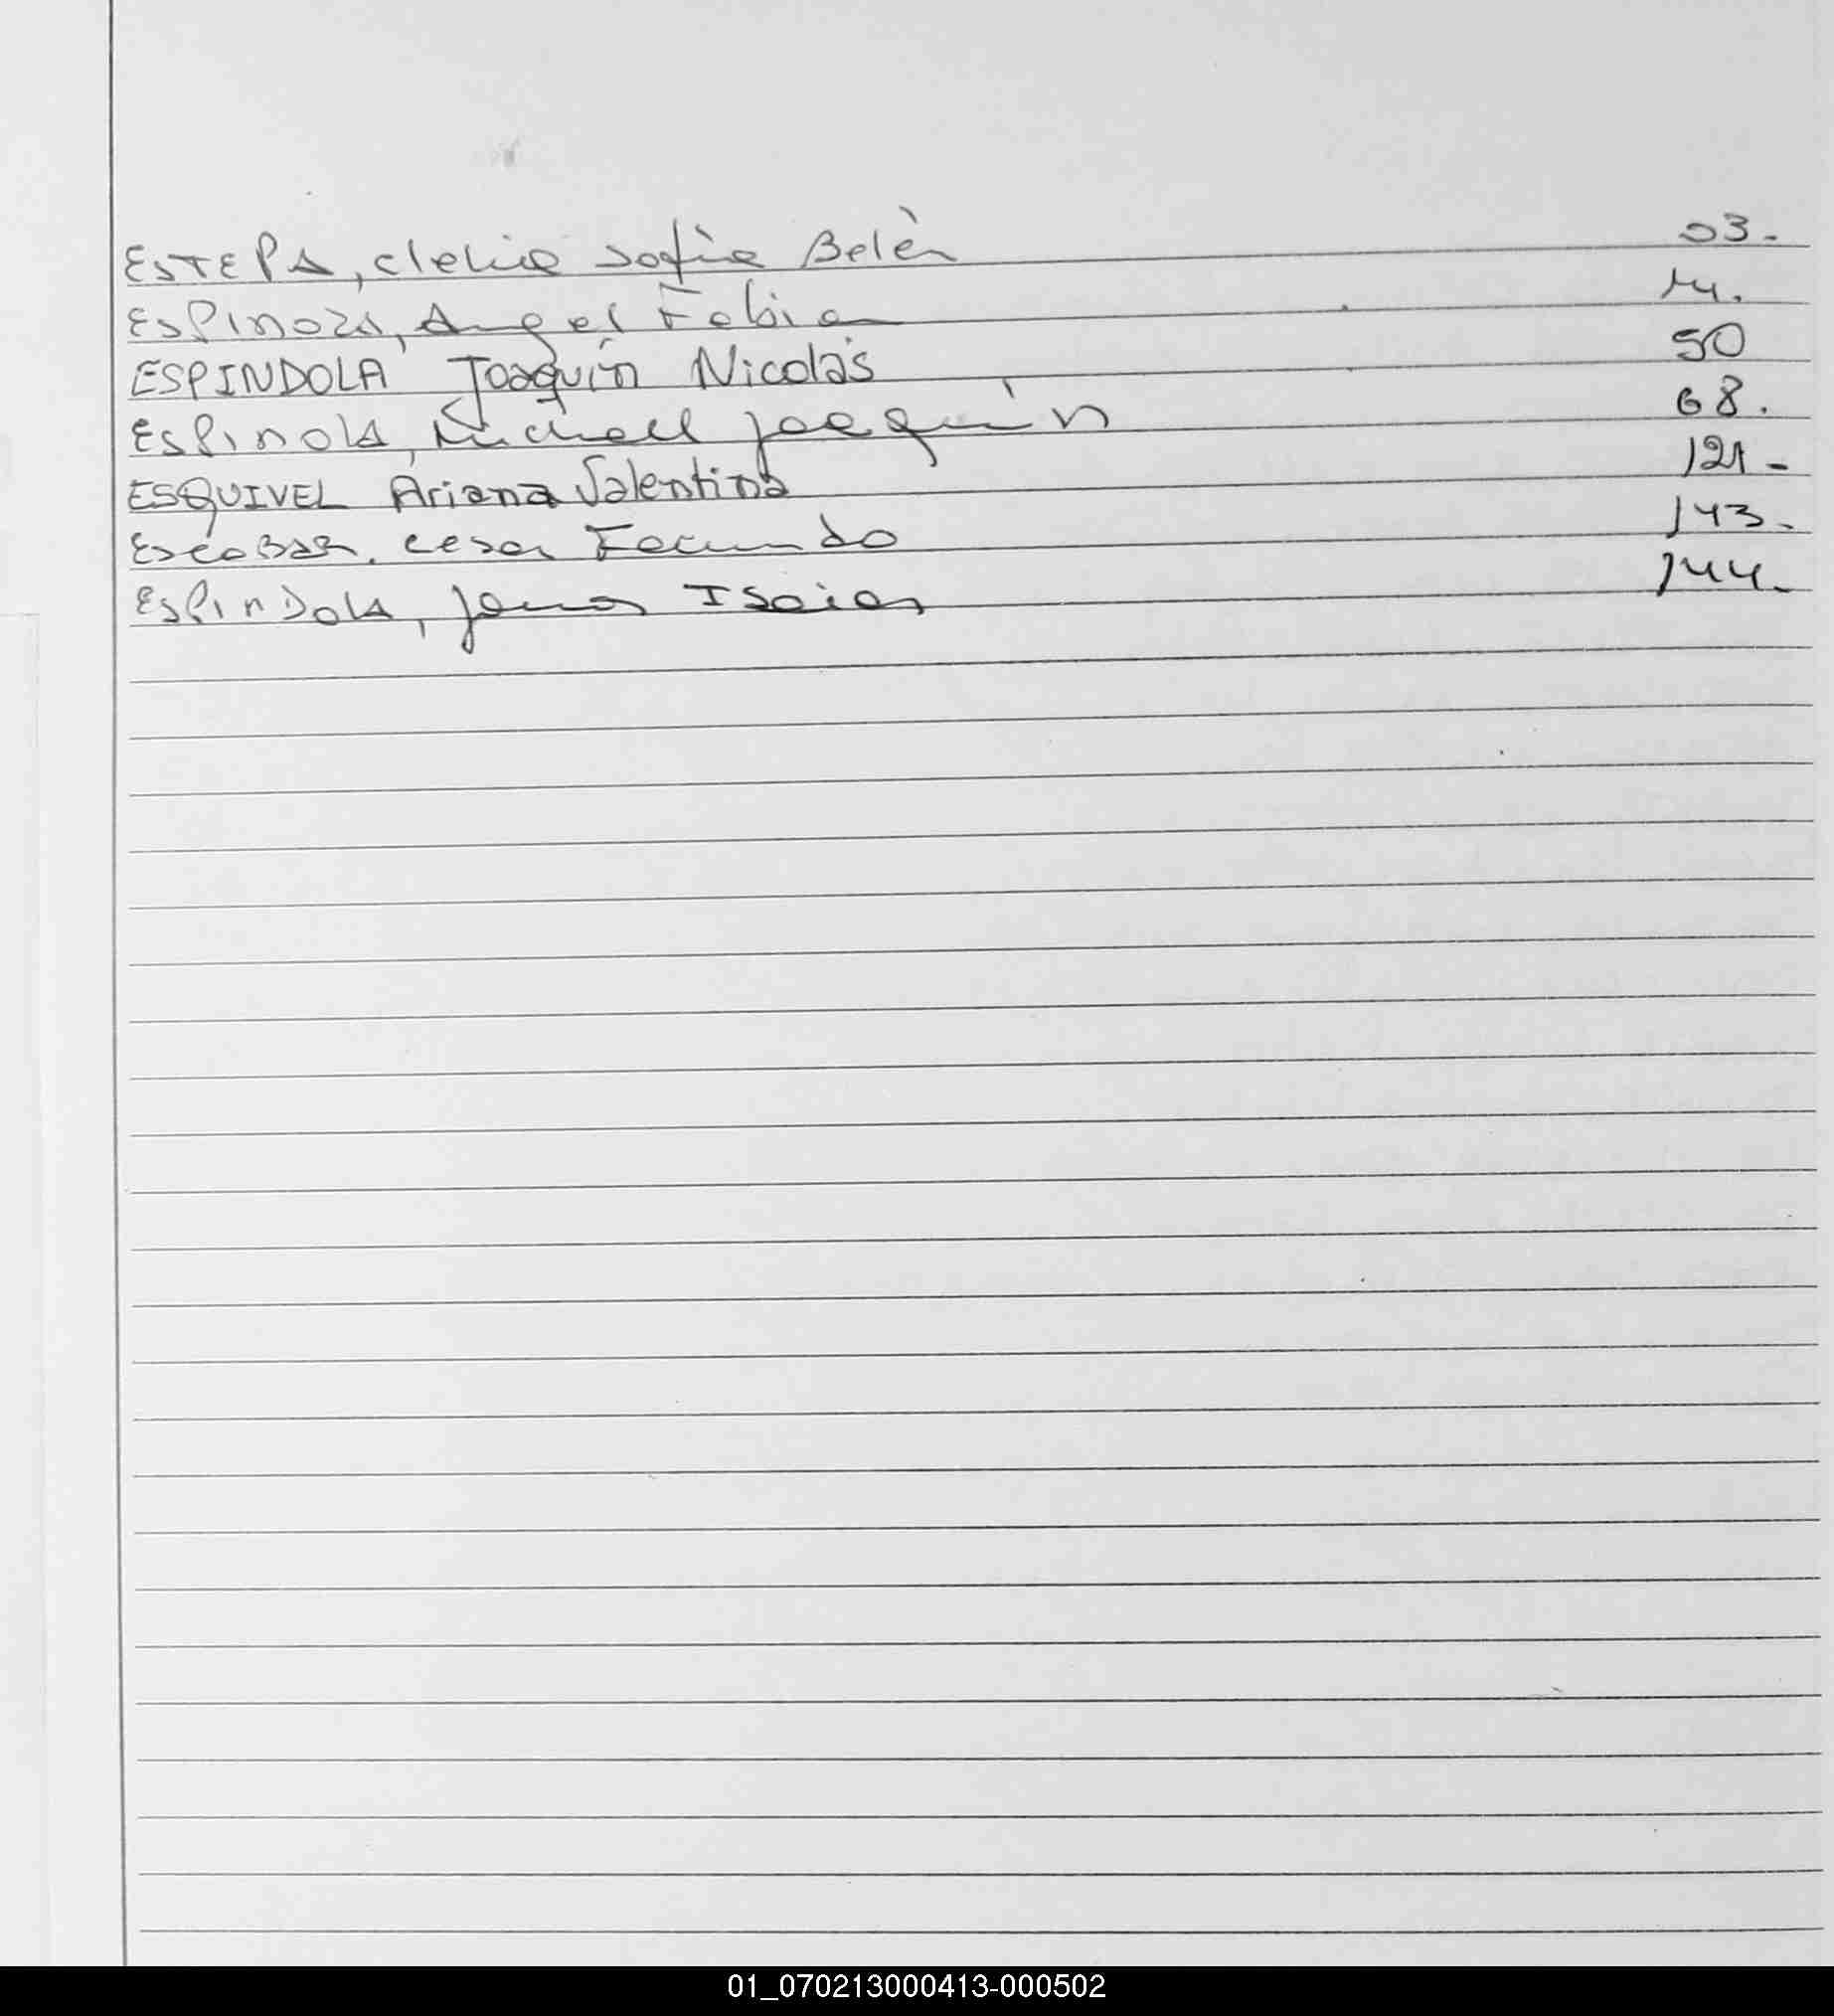 ESTEPA, Clelia Sofia Belèn 03.
Espinoza, Angel Fabian 14.
ESPINDOLA Joaquín Nicolás 50
Espinola, Michael Joaquín 68.
ESQUIVEL Ariana Valentina 121-
Escobar, Cesar Facundo 143.
Espindola, Isaias 144.
01_070213000413-000502